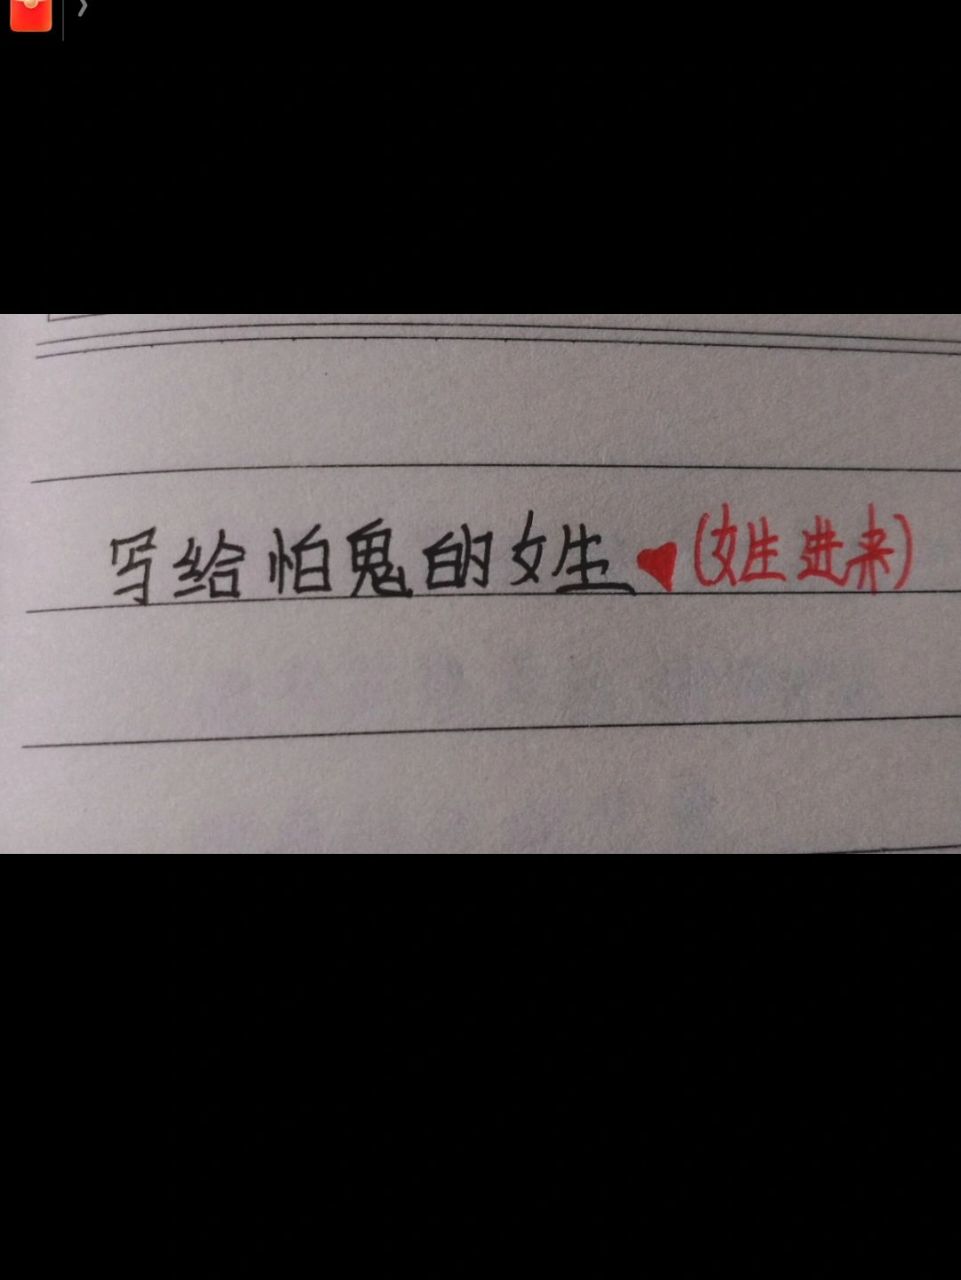 写给怕鬼的女生♥(女生进来)